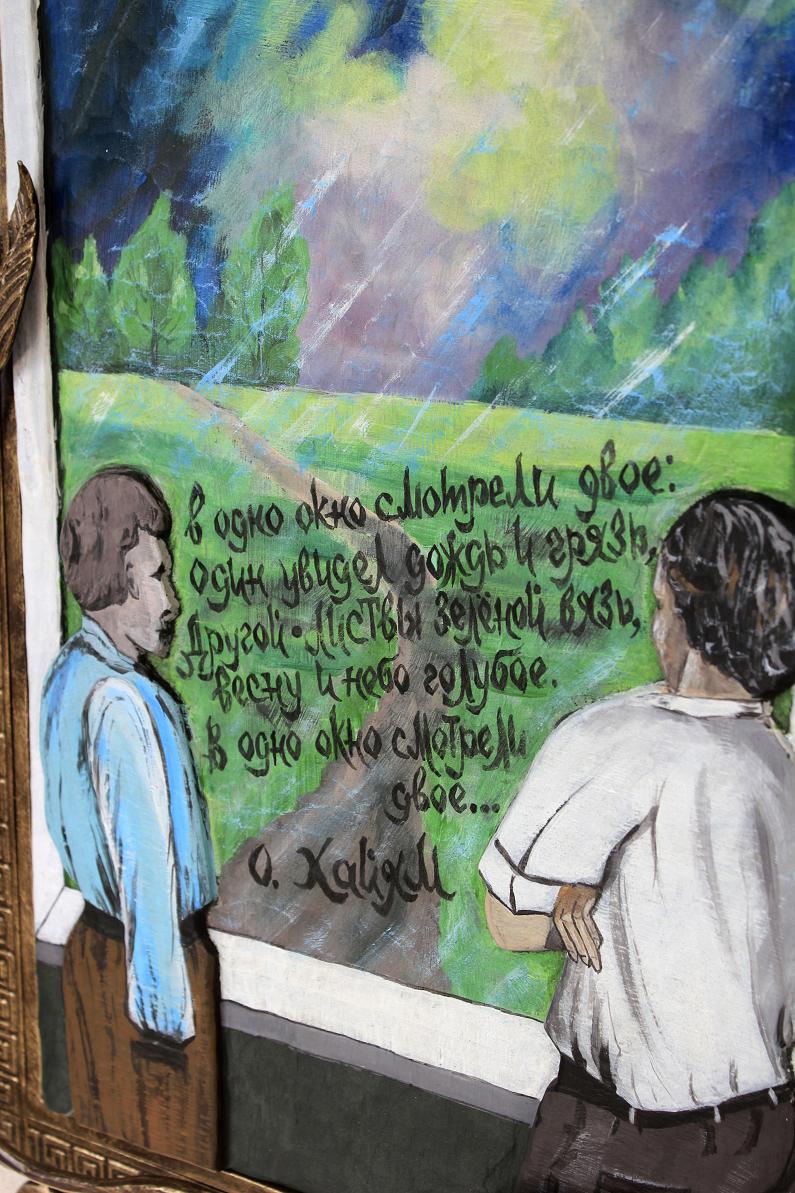 в одно окно смотрели двое:
один увидел дождь и грязь,
другой - листвы зелёной вязь,
весну и небо голубое.
в одно окно смотрели
двое...
О. Хайям